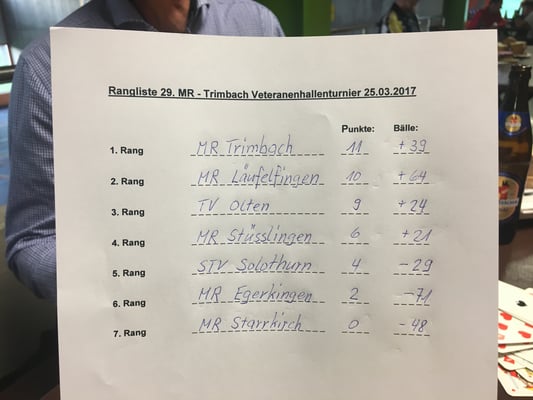 Rangliste 29. MR - Trimbach Veteranenhallenturnier 25.03.2017
Punkte: Bälle:
1. Rang MR Trimbach 11 +39
2. Rang MR Läufelfingen 10 +64
3. Rang TV Olten 9 +24
4. Rang MR Stüsslingen 6 +21
5. Rang STV Solothurn 4 -29
6. Rang MR Egerkingen 2 -71
7. Rang MR Starrkirch 0 -48